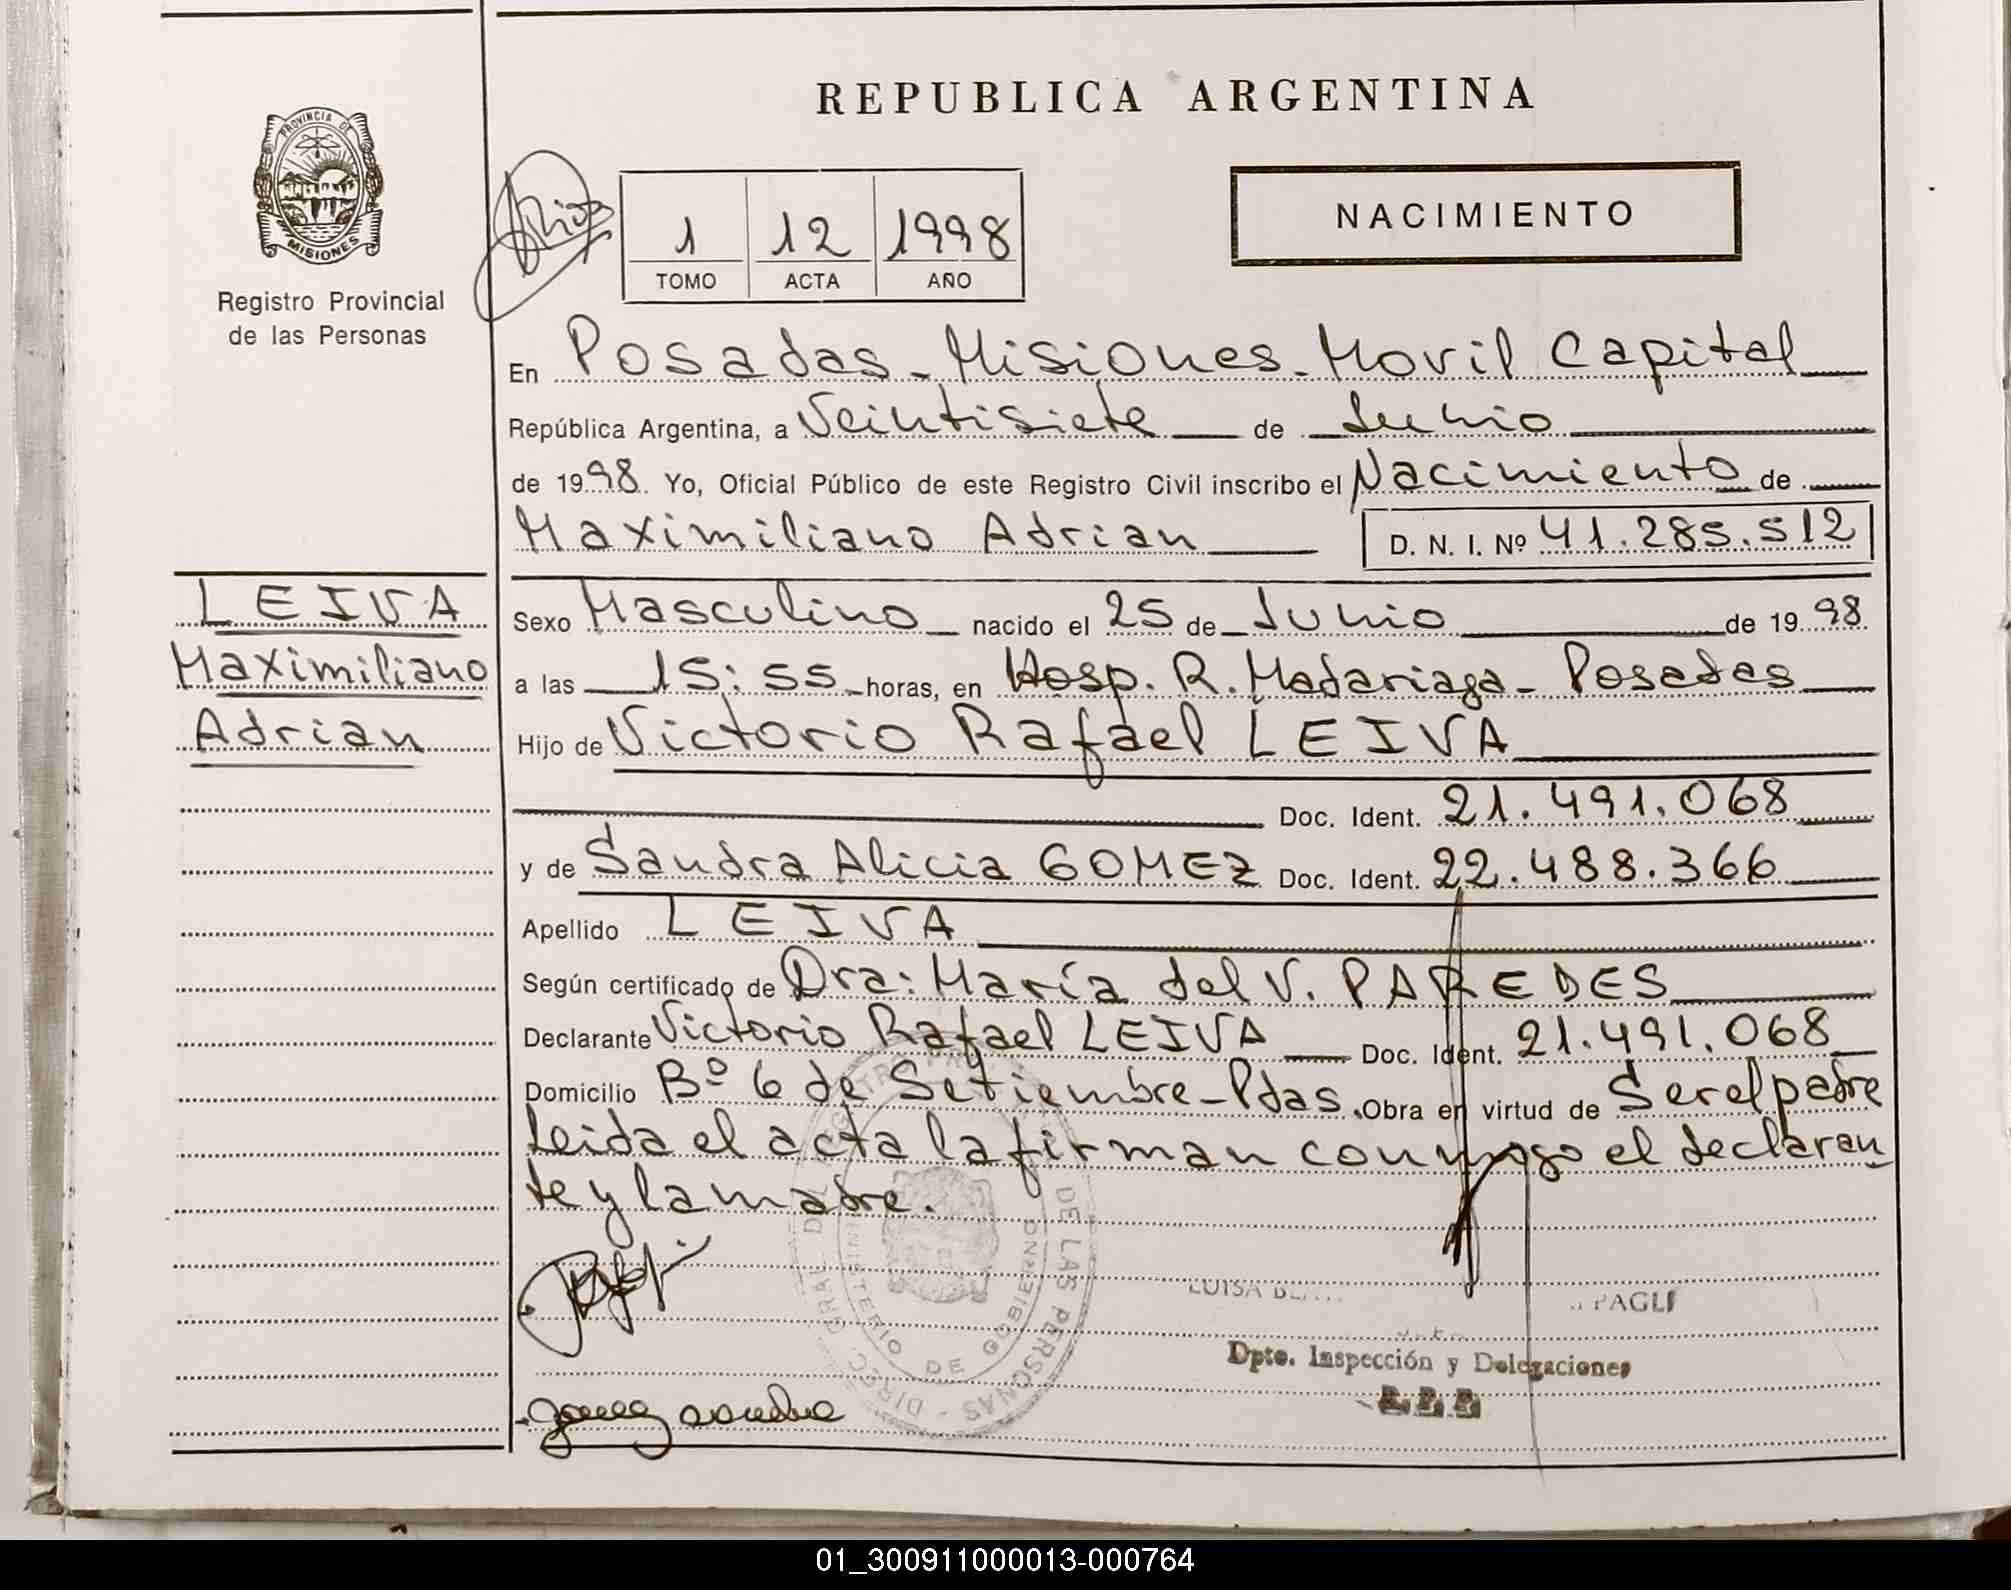 REPUBLICA ARGENTINA
PROVINCIA DE
MISIONES
Registro Provincial
de las Personas
1 12 1998
TOMO ACTA AÑO
NACIMIENTO
En Posadas - Misiones - Movil Capital
República Argentina, a Veintisiete de Junio
de 1998. Yo, Oficial Público de este Registro Civil inscribo el Nacimiento de
Maximiliano Adrian D. N. I. Nº 41.285.512
LEIVA
Maximiliano
Adrian
Sexo Masculino nacido el 25 de Junio de 1998.
a las 15:55 horas, en Hosp. R. Madariaga - Posadas
Hijo de Victorio Rafael LEIVA
Doc. Ident. 21.491.068
y de Sandra Alicia GOMEZ Doc. Ident. 22.488.366
Apellido LEIVA
Según certificado de Dra: María del V. PAREDES
Declarante Victorio Rafael LEIVA Doc. Ident. 21.491.068
Domicilio Bº 6 de Setiembre - Pdas. Obra en virtud de Ser el padre
Leida el acta la firman conmigo el declaran
te y la madre.
DE LAS PERSONAS - DIREC. GRAL. DEL
MINISTERIO DE GOBIERNO
LUISA
PAGLI
Dpto. Inspección y Delegaciones
gomez sandra
01_300911000013-000764